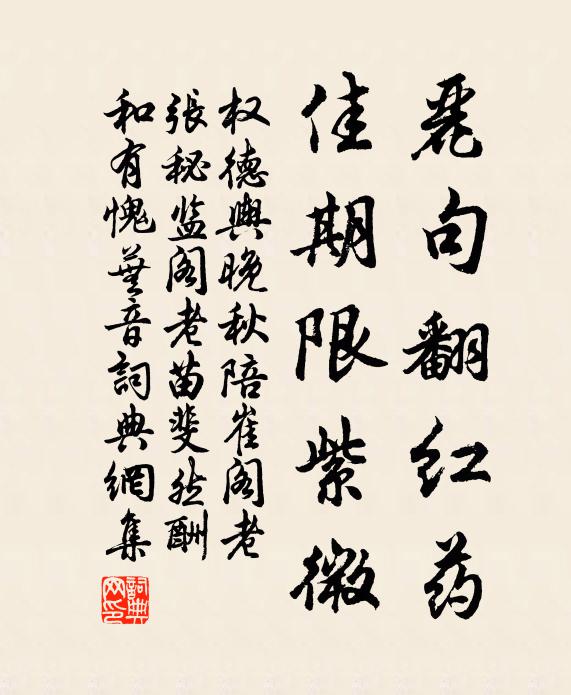 麗句翻红药
佳期限紫微
权德輿晚秋陪崔阁老
張秘监阁老苗斐然酬
和有愧蕪音詞典網集
詞典網印